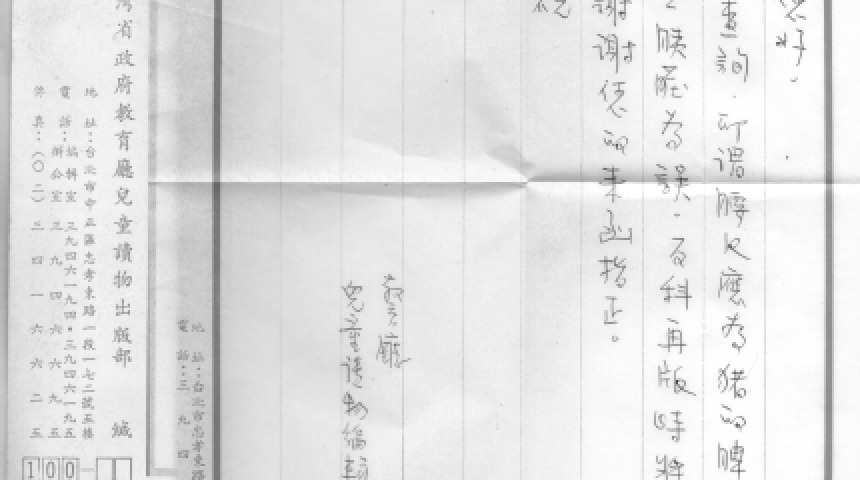 您好.
查詢.所謂腰尺應為豬的脾
胰臟為誤.百科再版時將
謝謝您的來函指正。
祝
教育廳
兒童讀物編輯
地 址:台北市忠孝東路
電 話:三九四
灣省政府教育廳兒童讀物出版部 緘
地 址:台北市中正區忠孝東路一段一七二號五樓
電 話:編輯室 三九四六一九四・三九四六一九五
辦公室 三九四六六九五
傳 真:(〇二)三四一六六二五
100